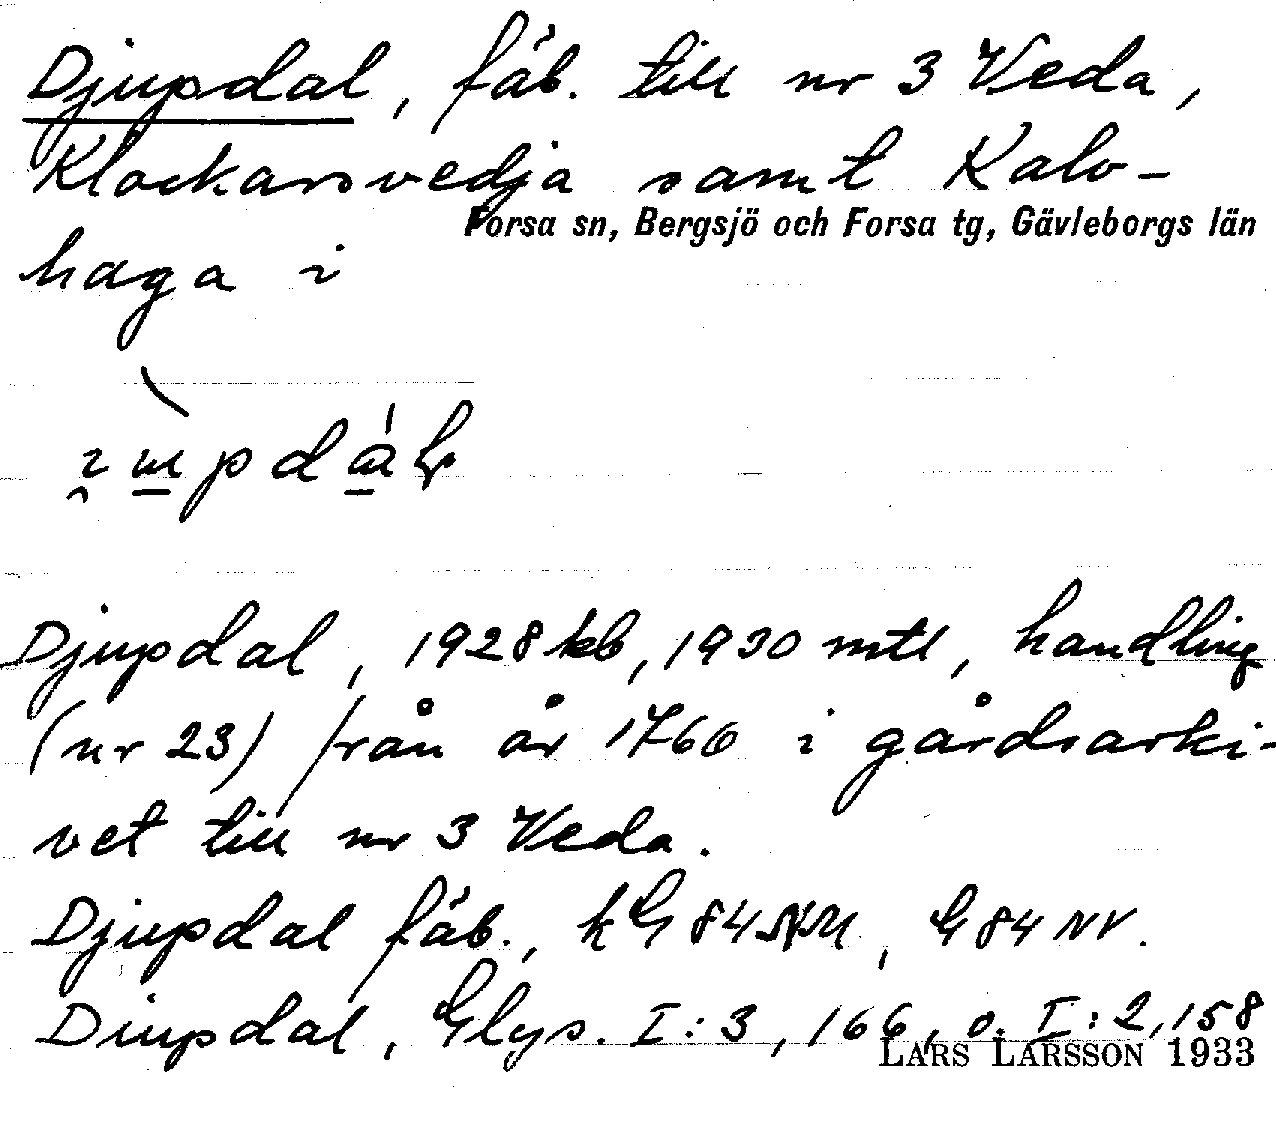 Djupdal, fäb. till nr 3 Veda,
Klockarsvedja samt Kalv-
Forsa sn, Bergsjö och Forsa tg, Gävleborgs län
haga i
Djupdal, 1928 kb, 1930 mtl, handling
(nr 23) från år 1766 i gårdsarki-
vet till nr 3 Veda.
Djupdal fäb., kG 84 , G 84 NV.
Diupdal, Glys. I:3, 166, o. I:2, 158
LARS LARSSON 1933